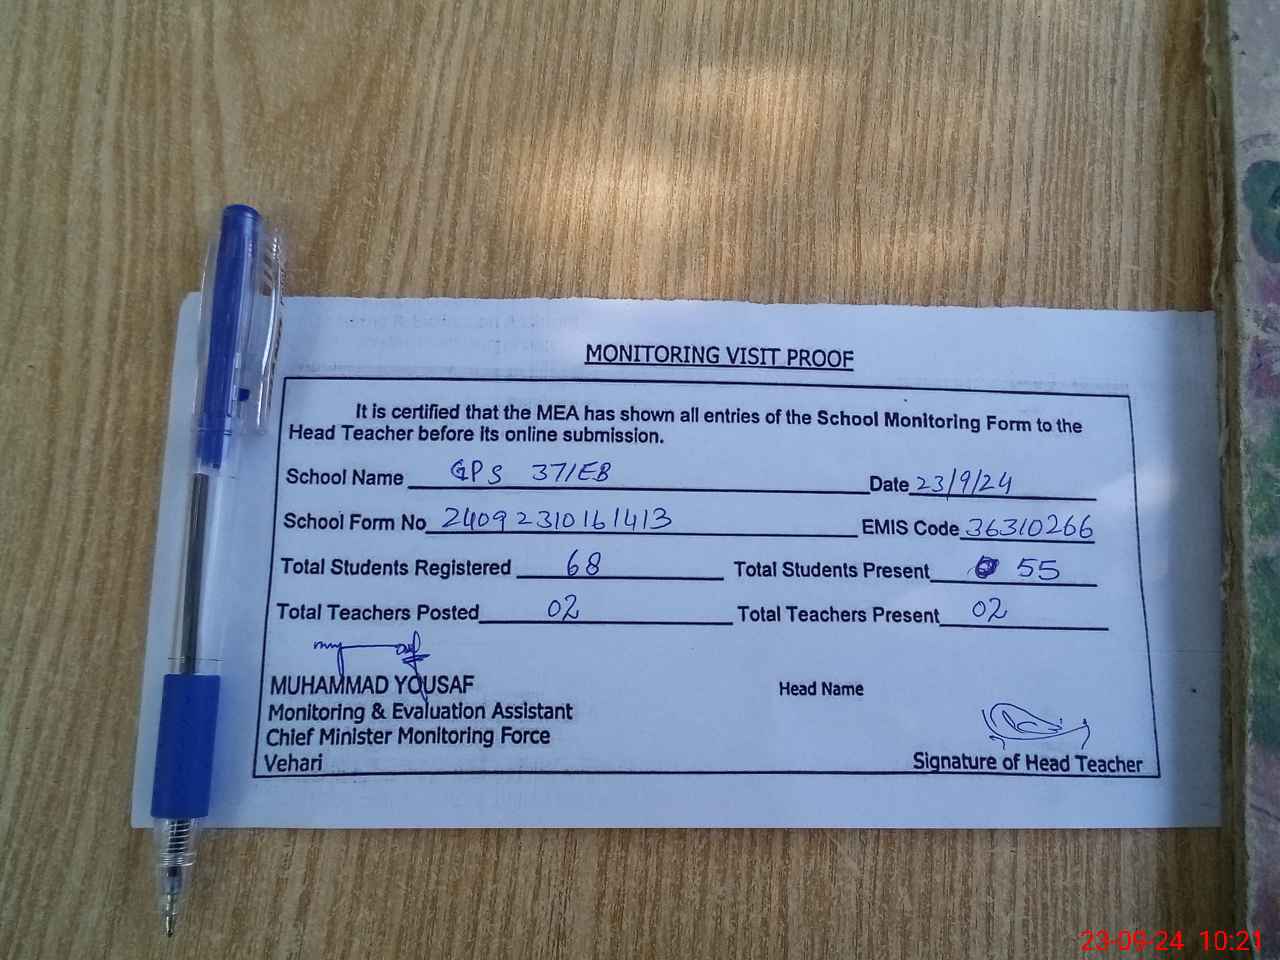 MONITORING VISIT PROOF
It is certified that the MEA has shown all entries of the School Monitoring Form to the
Head Teacher before its online submission.
School Name GPS 37/EB Date 23/9/24
School Form No 24092310161413 EMIS Code 36310266
Total Students Registered 68 Total Students Present 55
Total Teachers Posted 02 Total Teachers Present 02
MUHAMMAD YOUSAF Head Name
Monitoring & Evaluation Assistant
Chief Minister Monitoring Force
Vehari Signature of Head Teacher
23-09-24 10:21